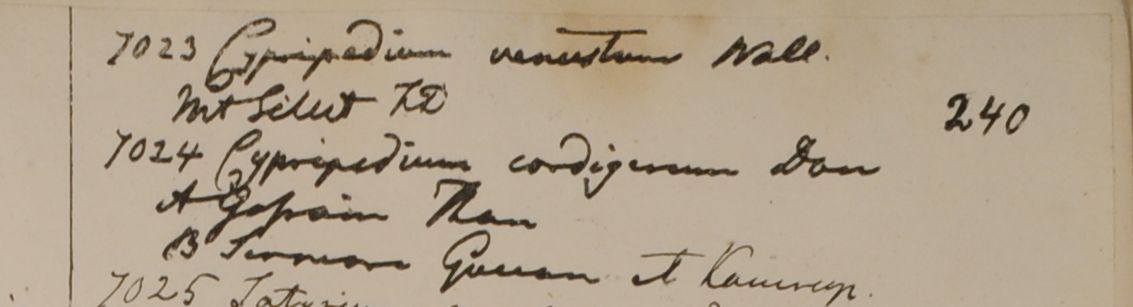 7023 Cypripedium venustum Wall.
Mt Sillet FD
240
7024 Cypripedium cordigerum Don
A Gosain Than
B Sirmore Guwan et Kamrup.
7025